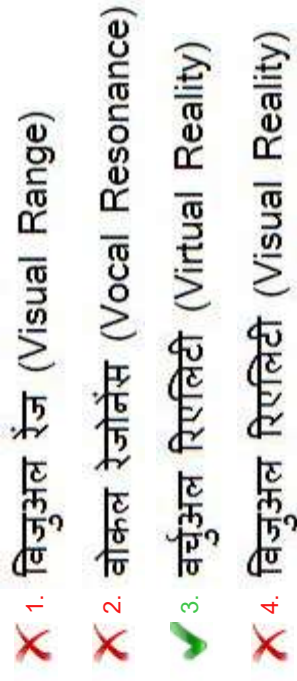 1. विजुअल रेंज (Visual Range)
2. वोकल रेजोनेंस (Vocal Resonance)
3. वर्चुअल रिएलिटी (Virtual Reality)
4. विजुअल रिएलिटी (Visual Reality)